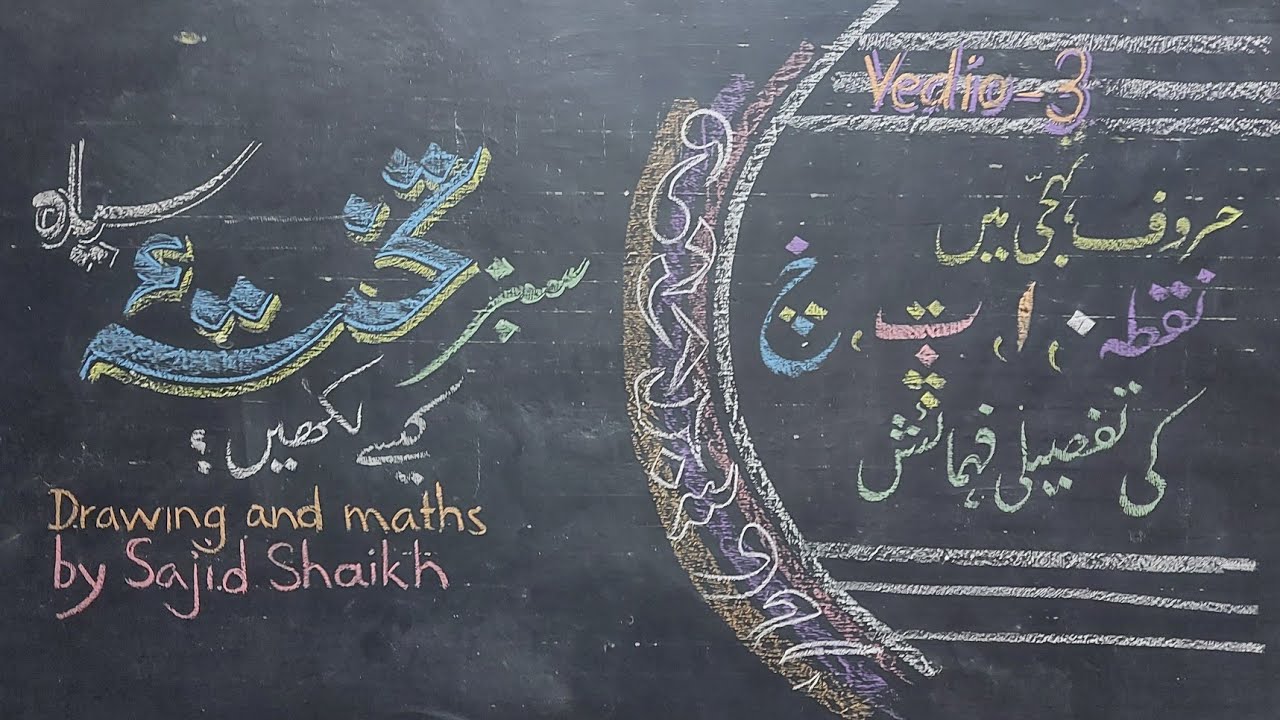 Vedio-3
حروف تہجّی میں
نقطہ ، ا ، پ ، چ
کی تفصیلی فہمائش
سیاہ
تختۂ
سبز
کیسے لکھیں؟
Drawing and maths
by Sajid Shaikh